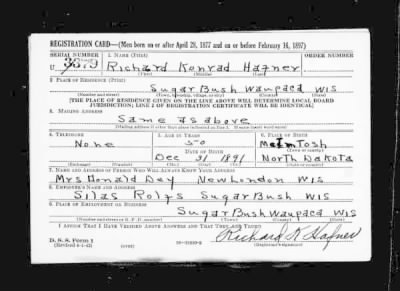 REGISTRATION CARD—(Men born on or after April 28, 1877 and on or before February 16, 1897)
SERIAL NUMBER 1. NAME (Print) ORDER NUMBER
U Richard Konrad Hafner
(First) (Middle) (Last)
2. PLACE OF RESIDENCE (Print)
Sugar Bush Waupaca Wis
(Number and street) (Town, township, village, or city) (County) (State)
[THE PLACE OF RESIDENCE GIVEN ON THE LINE ABOVE WILL DETERMINE LOCAL BOARD
JURISDICTION; LINE 2 OF REGISTRATION CERTIFICATE WILL BE IDENTICAL]
3. MAILING ADDRESS
Same as above
[Mailing address if other than place indicated on line 2. If same insert word same]
4. TELEPHONE 5. AGE IN YEARS 6. PLACE OF BIRTH
None 50 McIntosh
DATE OF BIRTH (Town or county)
Dec 31 1891 North Dakota
(Exchange) (Number) (Mo.) (Day) (Yr.) (State or country)
7. NAME AND ADDRESS OF PERSON WHO WILL ALWAYS KNOW YOUR ADDRESS
Mrs Donald Dey New London Wis
8. EMPLOYER'S NAME AND ADDRESS
Silas Rolfs Sugar Bush Wis
9. PLACE OF EMPLOYMENT OR BUSINESS
Sugar Bush Waupaca Wis
(Number and street or R. F. D. number) (Town) (County) (State)
I AFFIRM THAT I HAVE VERIFIED ABOVE ANSWERS AND THAT THEY ARE TRUE.
D. S. S. Form 1
(Revised 4-1-42) (over) Richard K Hafner
(Registrant's signature)